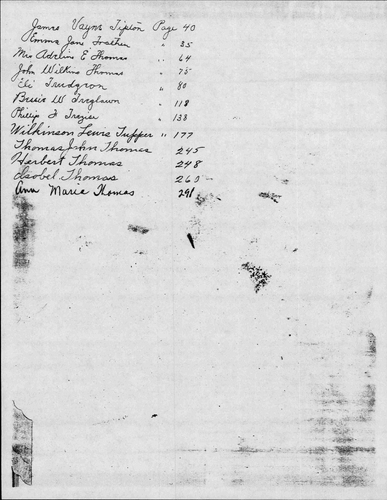 James Vayne Tipton Page 40
Emma Jane Trathen " 35
Mrs Adelia E Thomas " 64
John Wilkins Thomas " 75
Eli " 80
Bessie W Treglawn " 118
Phillip J Trezise " 138
Wilkinson Lewis Tupper " 177
Thomas John Thomas 245
Herbert Thomas 248
Isobel Thomas 260
Ann Maria Thomas 291